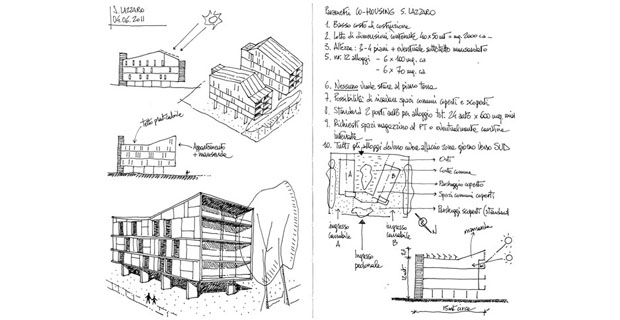 S. LAZZARO
06.06.2011
tetto praticabile
Appartamento
+ mansarda
Parametri CO-HOUSING S. LAZZARO
1. Basso costo di costruzione
2. Lotto di dimensioni 40x50 mt = mq. 2000 ca
3. Altezza: 3-4 piani + eventuale sottotetto mansardato
5. nr. 12 alloggi - 6 x 100 mq. ca
- 6 x 70 mq. ca
6. Nessuno vuole stare al piano terra
7. Possibilità di ricavare spazi comuni coperti e scoperti
8. Standard 2 posti auto per alloggio tot. 24 auto x 600 mq.
9. Richiesti spazi magazzino al PT o eventualmente cantine
interrate
10. Tutti gli alloggi devono avere affaccio zona giorno verso SUD
A
B
Orti
Corte comune
Parcheggio coperto
Spazi comuni coperti
Parcheggi scoperti (standard
ingresso
carrabile
A
ingresso
pedonale
ingresso
carrabile
B
mansarda